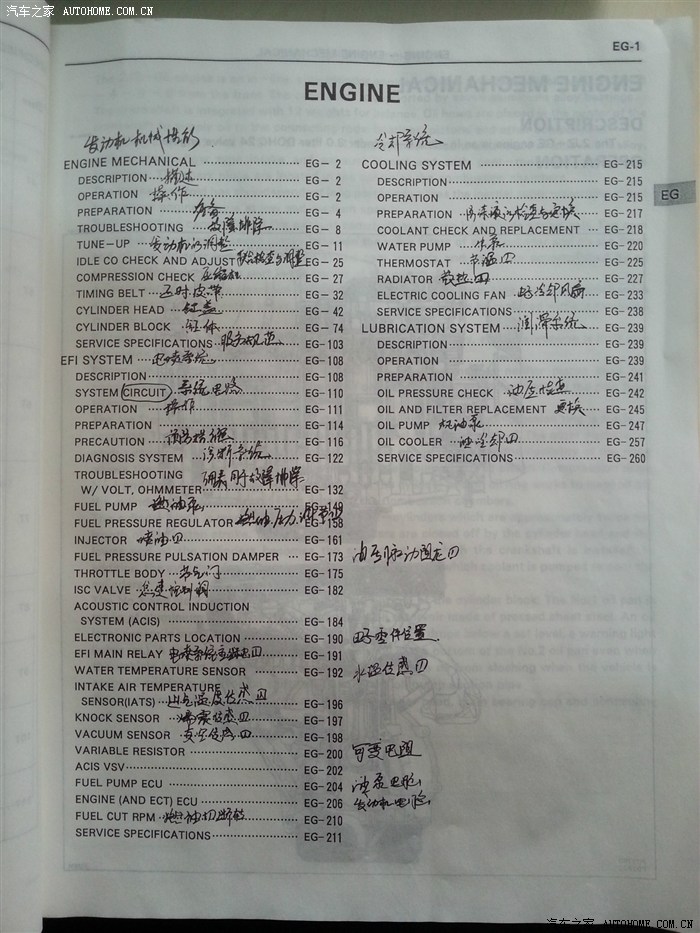 汽车之家 AUTOHOME.COM.CN
EG-1
ENGINE
发动机机械
ENGINE MECHANICAL EG- 2
DESCRIPTION 描述 EG- 2
OPERATION 操作 EG- 2
PREPARATION 准备 EG- 4
TROUBLESHOOTING 故障排除 EG- 8
TUNE-UP 发动机的调整 EG-11
IDLE CO CHECK AND ADJUST 检查与调整 EG-25
COMPRESSION CHECK 压缩 EG-27
TIMING BELT 正时皮带 EG-32
CYLINDER HEAD 缸盖 EG-42
CYLINDER BLOCK 缸体 EG-74
SERVICE SPECIFICATIONS 服务规范 EG-103
EFI SYSTEM 电喷系统 EG-108
DESCRIPTION EG-108
SYSTEM CIRCUIT 系统电路 EG-110
OPERATION 操作 EG-111
PREPARATION EG-114
PRECAUTION 预防措施 EG-116
DIAGNOSIS SYSTEM 诊断系统 EG-122
TROUBLESHOOTING 用于故障排除
W/ VOLT, OHMMETER EG-132
FUEL PUMP 燃油泵 EG-149
FUEL PRESSURE REGULATOR 燃油压力 EG-158
INJECTOR 喷油四 EG-161
FUEL PRESSURE PULSATION DAMPER EG-173 油 脉动 四
THROTTLE BODY 节气门 EG-175
ISC VALVE 怠速控制阀 EG-182
ACOUSTIC CONTROL INDUCTION
SYSTEM (ACIS) EG-184
ELECTRONIC PARTS LOCATION EG-190 电子零件位置
EFI MAIN RELAY 电喷系统 EG-191
WATER TEMPERATURE SENSOR EG-192 水温传感四
INTAKE AIR TEMPERATURE
SENSOR(IATS) 进气温度传感四 EG-196
KNOCK SENSOR 爆震传感四 EG-197
VACUUM SENSOR 真空传感四 EG-198
VARIABLE RESISTOR EG-200 可变电阻
ACIS VSV EG-202
FUEL PUMP ECU EG-204 油泵电脑
ENGINE (AND ECT) ECU EG-206 发动机电脑
FUEL CUT RPM 燃油切断 EG-210
SERVICE SPECIFICATIONS EG-211
冷却系统
COOLING SYSTEM EG-215
DESCRIPTION EG-215
OPERATION EG-215
PREPARATION 冷冻液的检查与更换 EG-217
COOLANT CHECK AND REPLACEMENT EG-218
WATER PUMP 水泵 EG-220
THERMOSTAT 节温四 EG-225
RADIATOR 散热四 EG-227
ELECTRIC COOLING FAN 电子冷却风扇 EG-233
SERVICE SPECIFICATIONS EG-238
LUBRICATION SYSTEM 润滑系统 EG-239
DESCRIPTION EG-239
OPERATION EG-239
PREPARATION EG-241
OIL PRESSURE CHECK 油压检查 EG-242
OIL AND FILTER REPLACEMENT 更换 EG-245
OIL PUMP 机油泵 EG-247
OIL COOLER 油冷却四 EG-257
SERVICE SPECIFICATIONS EG-260
EG
汽车之家 AUTOHOME.COM.CN